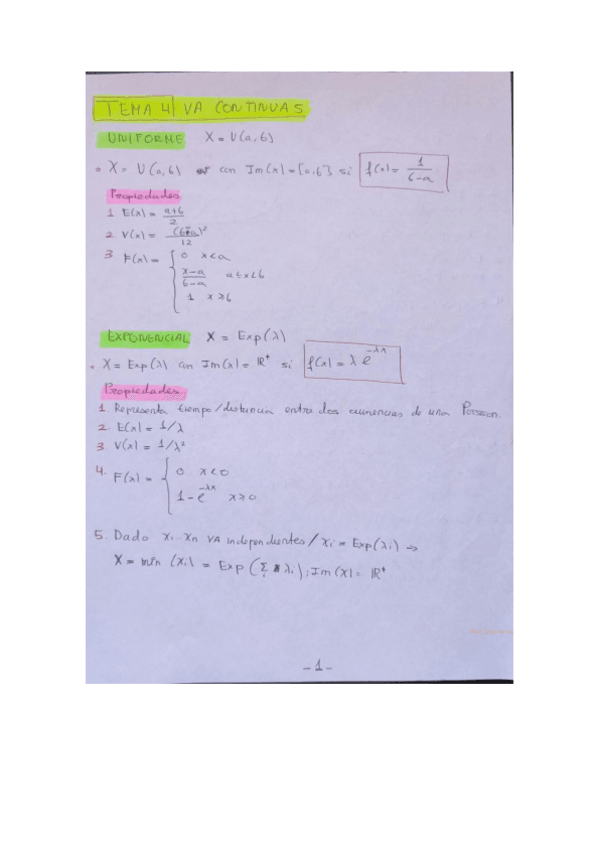 TEMA 4 VA CONTINUAS
UNIFORME X = U(a,b)
X = U(a,b) con Im(x) = [a,b] si f(x) = 1/(b-a)
Propiedades
1 E(x) = (a+b)/2
2. V(x) = (b-a)²/12
3 F(x) = { 0 x<a
(x-a)/(b-a) a≤x<b
1 x≥b
EXPONENCIAL X = Exp(λ)
X = Exp(λ) con Im(x) = ℝ⁺ si f(x) = λ e^(-λx)
Propiedades
1. Representa tiempo/distancia entre dos ocurrencias de una Poisson.
2. E(x) = 1/λ
3 V(x) = 1/λ²
4. F(x) = { 0 x<0
1 - e^(-λx) x≥0
5. Dado x₁...xn VA independientes / xi = Exp(λi) ⇒
X = min (xi) = Exp(Σ λi); Im(X) = ℝ⁺
- 1 -